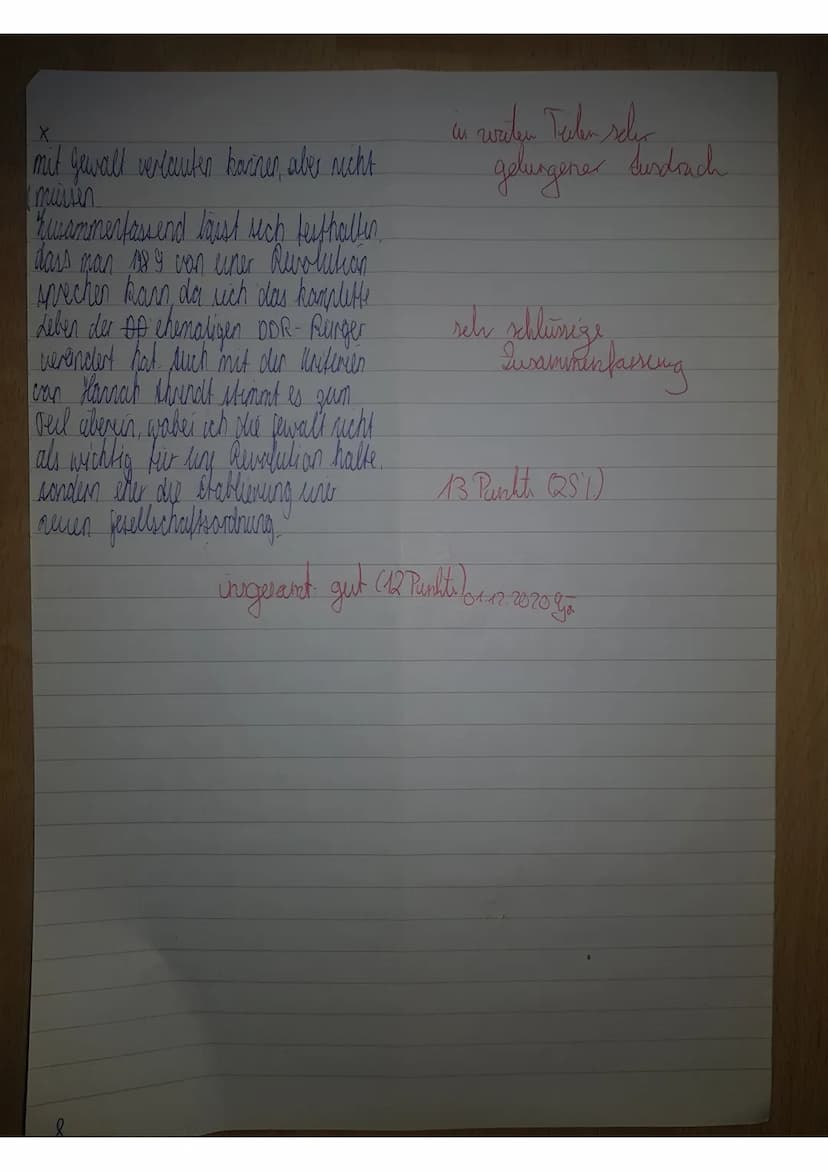 x
mit Gewalt verlaufen können, aber nicht
müssen.
Zusammenfassend lässt sich festhalten,
dass man 1989 von einer Revolution
sprechen kann, da sich das komplette
Leben der ehemaligen DDR-Bürger
verändert hat. Auch mit den Kriterien
von Hannah Arendt stimmt es zum
Teil überein, wobei ich die Gewalt nicht
als wichtig für eine Revolution halte,
sondern eher die Etablierung einer
neuen Gesellschaftsordnung.
in weiten Teilen sehr
gelungener Ausdruck
sehr schlüssige
Zusammenfassung
13 Punkte (25%)
insgesamt: gut (12 Punkte) 01.12.2020
8